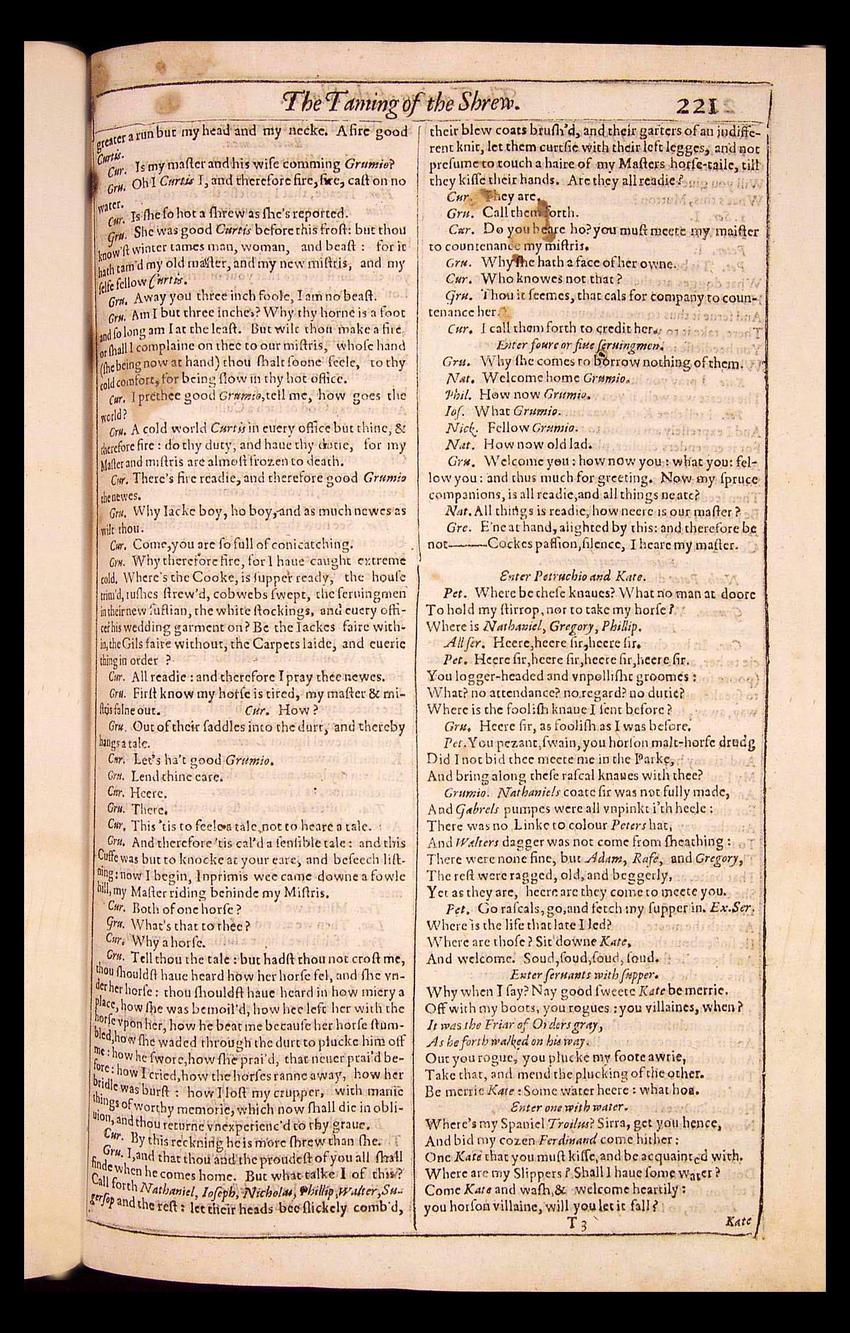 The Taming of the Shrew.
221
greater a run but my head and my necke. A fire good
Curtis.
Cur. Is my master and his wife comming Grumio?
Gru. Oh I Curtis I, and therefore fire, fire, cast on no
water.
Cur. Is she so hot a shrew as she's reported.
Gru. She was good Curtis before this frost: but thou
know'st winter tames man, woman, and beast : for it
hath tam'd my old master, and my new mistris, and my
selfe fellow Curtis.
Gru. Away you three inch foole, I am no beast.
Gru. Am I but three inches? Why thy horne is a foot
and so long am I at the least. But wilt thou make a fire,
or shall I complaine on thee to our mistris, whose hand
(she being now at hand) thou shalt soone feele, to thy
cold comfort, for being slow in thy hot office.
Cur. I prethee good Grumio, tell me, how goes the
world?
Gru. A cold world Curtis in euery office but thine, &
therefore fire : do thy duty, and haue thy dutie, for my
Master and mistris are almost frozen to death.
Cur. There's fire readie, and therefore good Grumio
the newes.
Gru. Why Iacke boy, ho boy, and as much newes as
wilt thou.
Cur. Come, you are so full of conicatching.
Gru. Why therefore fire, for I haue caught extreme
cold. Where's the Cooke, is supper ready, the house
trim'd, rushes strew'd, cobwebs swept, the seruingmen
in their new fustian, the white stockings, and euery offi-
cer his wedding garment on? Be the Iackes faire with-
in, the Gils faire without, the Carpets laide, and euerie
thing in order ?
Cur. All readie : and therefore I pray thee newes.
Gru. First know my horse is tired, my master & mi-
stris falne out. Cur. How ?
Gru. Out of their saddles into the durt, and thereby
hangs a tale.
Cur. Let's ha't good Grumio.
Gru. Lend thine eare.
Cur. Heere.
Gru. There.
Cur. This 'tis to feele a tale, not to heare a tale.
Gru. And therefore 'tis cal'd a sensible tale : and this
Cuffe was but to knocke at your eare, and beseech list-
ning: now I begin, Inprimis wee came downe a fowle
hill, my Master riding behinde my Mistris.
Cur. Both of one horse ?
Gru. What's that to thee ?
Cur. Why a horse.
Gru. Tell thou the tale : but hadst thou not crost me,
thou shouldst haue heard how her horse fel, and she vn-
der her horse : thou shouldst haue heard in how miery a
place, how she was bemoil'd, how hee left her with the
horse vpon her, how he beat me because her horse stum-
bled, how she waded through the durt to plucke him off
me : how he swore, how she prai'd, that neuer prai'd be-
fore : how I cried, how the horses ranne away, how her
bridle was burst : how I lost my crupper, with manie
things of worthy memorie, which now shall die in obli-
uion, and thou returne vnexperienc'd to thy graue.
Cur. By this reckning he is more shrew than she.
Gru. I, and that thou and the proudest of you all shall
finde when he comes home. But what talke I of this?
Call forth Nathaniel, Ioseph, Nicholas, Phillip, Walter, Su-
gersop and the rest : let their heads bee slickely comb'd,
their blew coats brush'd, and their garters of an indiffe-
rent knit, let them curtsie with their left legges, and not
presume to touch a haire of my Masters horse-taile, till
they kisse their hands. Are they all readie ?
Cur. They are.
Gru. Call them forth.
Cur. Do you heare ho? you must meete my maister
to countenance my mistris.
Gru. Why she hath a face of her owne.
Cur. Who knowes not that ?
Gru. Thou it seemes, that cals for company to coun-
tenance her.
Cur. I call them forth to credit her.
Enter foure or fiue seruingmen.
Gru. Why she comes to borrow nothing of them.
Nat. Welcome home Grumio.
Phil. How now Grumio.
Ios. What Grumio.
Nick. Fellow Grumio.
Nat. How now old lad.
Gru. Welcome you : how now you : what you : fel-
low you : and thus much for greeting. Now my spruce
companions, is all readie, and all things neate?
Nat. All things is readie, how neere is our master ?
Gre. E'ne at hand, alighted by this: and therefore be
not———Cockes passion, silence, I heare my master.
Enter Petruchio and Kate.
Pet. Where be these knaues? What no man at doore
To hold my stirrop, nor to take my horse?
Where is Nathaniel, Gregory, Phillip.
All ser. Heere, heere sir, heere sir.
Pet. Heere sir, heere sir, heere sir, heere sir.
You logger-headed and vnpollisht groomes :
What? no attendance? no regard? no dutie?
Where is the foolish knaue I sent before ?
Gru. Heere sir, as foolish as I was before.
Pet. You pezant, swain, you horson malt-horse drudg
Did I not bid thee meete me in the Parke,
And bring along these rascal knaues with thee?
Grumio. Nathaniels coate sir was not fully made,
And Gabrels pumpes were all vnpinkt i'th heele :
There was no Linke to colour Peters hat,
And Walters dagger was not come from sheathing :
There were none fine, but Adam, Rafe, and Gregory,
The rest were ragged, old, and beggerly,
Yet as they are, heere are they come to meete you.
Pet. Go rascals, go, and fetch my supper in. Ex. Ser.
Where is the life that late I led?
Where are those ? Sit downe Kate,
And welcome. Soud, soud, soud, soud.
Enter seruants with supper.
Why when I say? Nay good sweete Kate be merrie.
Off with my boots, you rogues : you villaines, when ?
It was the Friar of Orders gray,
As he forth walked on his way.
Out you rogue, you plucke my foote awrie,
Take that, and mend the plucking of the other.
Be merrie Kate : Some water heere : what hoa.
Enter one with water.
Where's my Spaniel Troilus? Sirra, get you hence,
And bid my cozen Ferdinand come hither :
One Kate that you must kisse, and be acquainted with.
Where are my Slippers ? Shall I haue some water ?
Come Kate and wash, & welcome heartily :
you horson villaine, will you let it fall ?
T 3
Kate